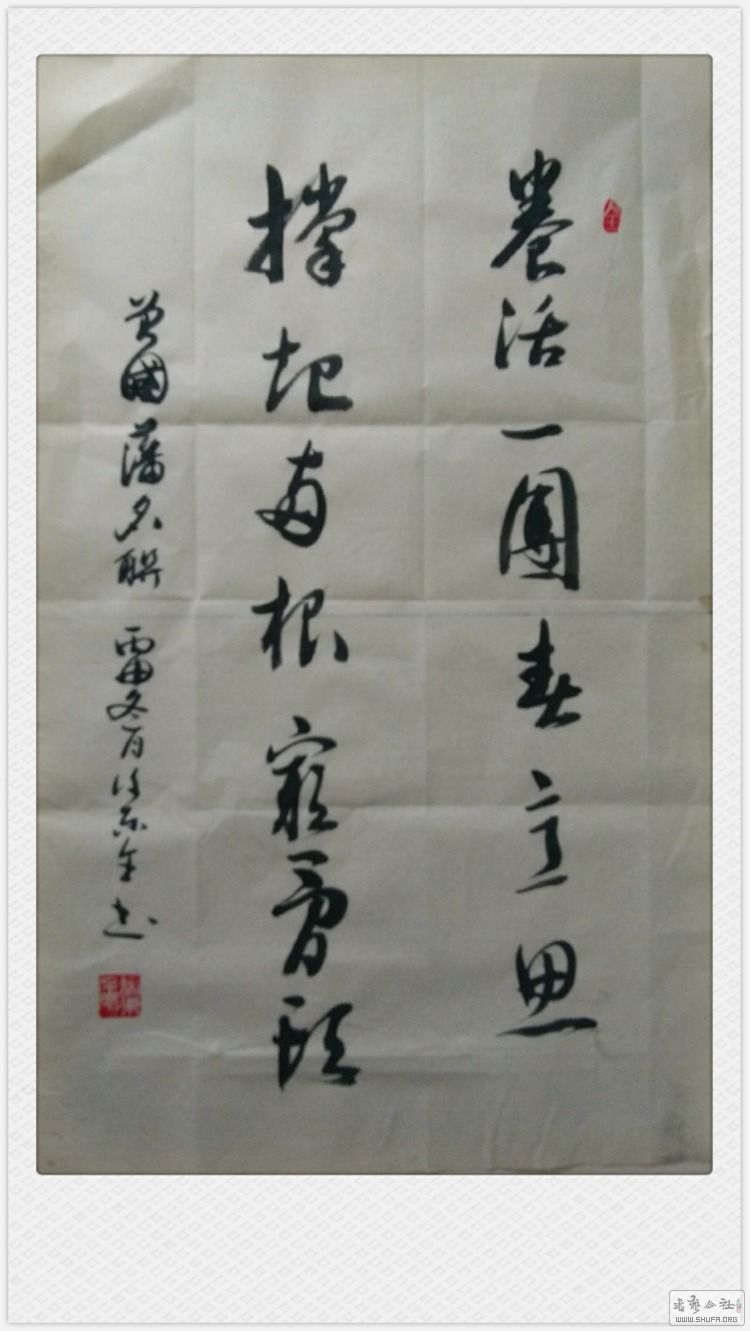 養活一團春意思
撐起兩根窮骨頭
曾國藩名聯
书艺公社
WWW.SHUFA.ORG